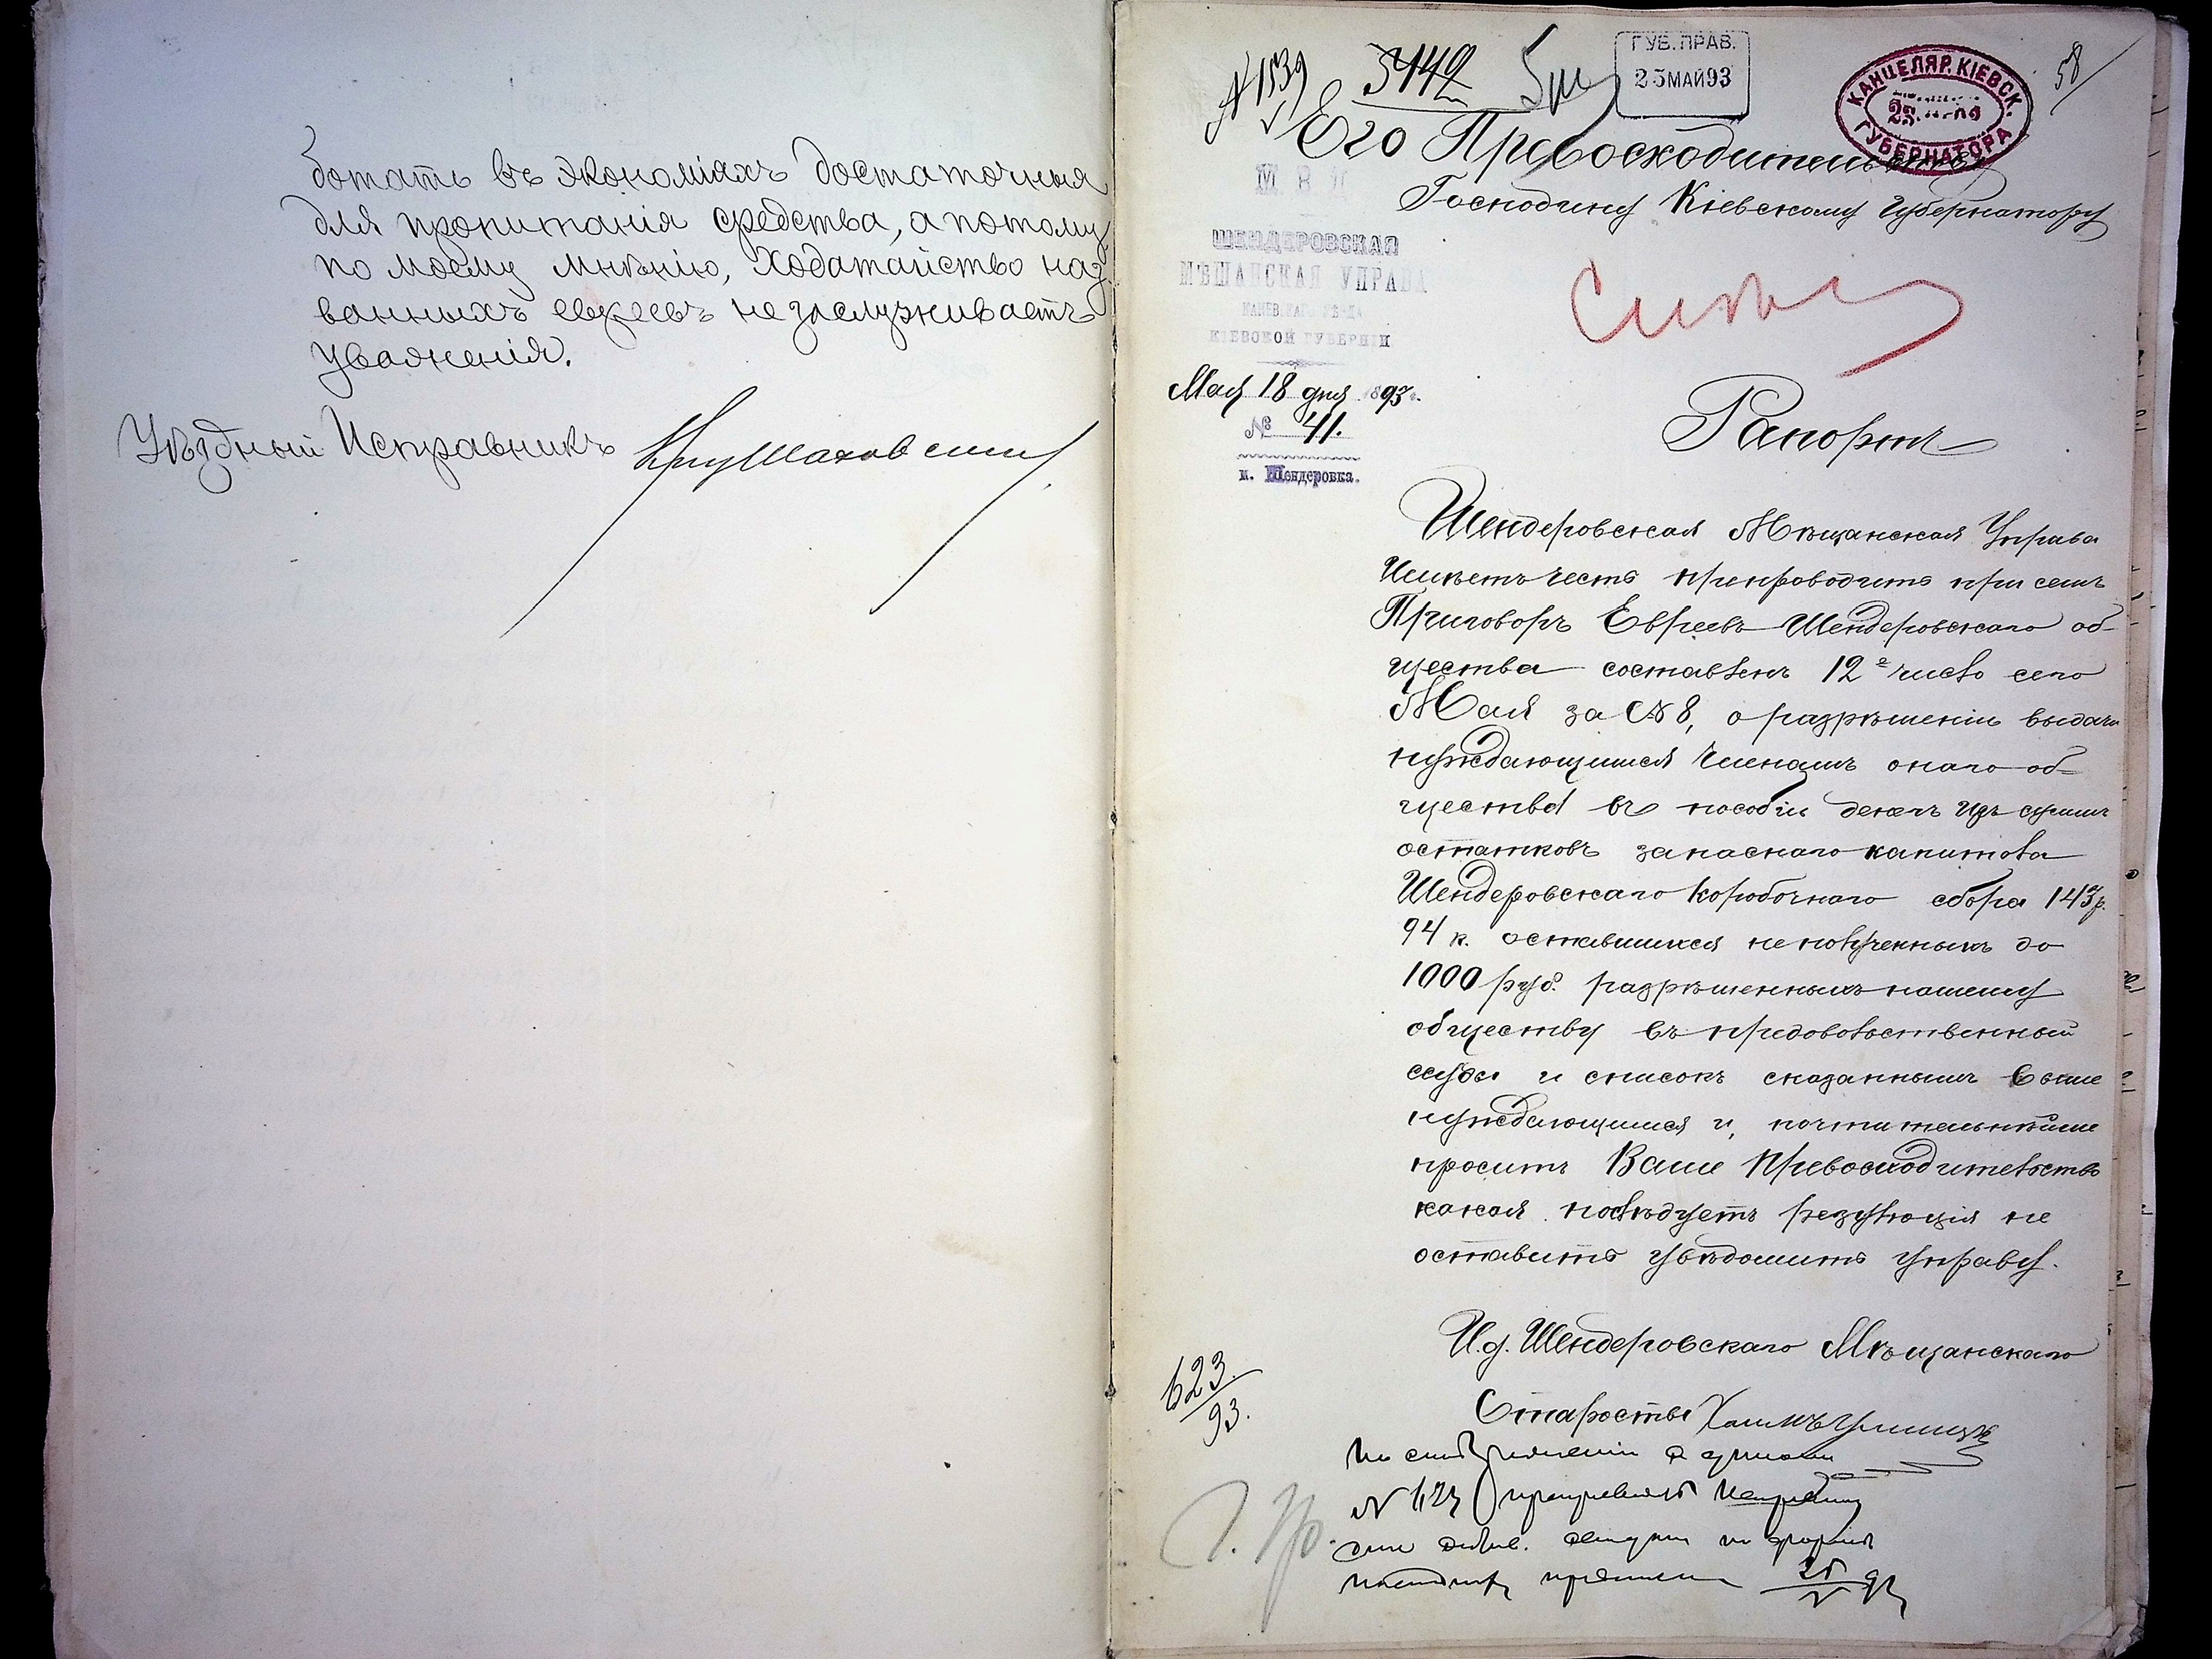 ботать въ экономіяхъ достаточныя
для пропитанія средства, а потому
по моему мнѣнію, ходатайство наз-
ванныхъ евреевъ не заслуживаетъ
уваженія.
Уѣздный Исправникъ
58
№ 1539
5142
ГУБ. ПРАВ.
25 МАЙ 93
КАНЦЕЛЯР. КІЕВСК.
ГУБЕРНАТОРА
Его Превосходительству
Господину Кіевскому Губернатору
М. В. Д.
ШЕНДЕРОВСКАЯ
МѢЩАНСКАЯ УПРАВА
КАНЕВСКАГО УѢЗДА
КІЕВСКОЙ ГУБЕРНІИ
Мая 18 дня 1893 г.
№ 41.
м. Шендеровка.
Рапортъ
Шендеровская Мѣщанская Управа
Имѣетъ честь препроводить при семъ
Приговоръ Евреевъ Шендеровскаго об-
щества составленъ 12е число сего
Мая за № 8, о разрѣшеніи выдачи
нуждающимся членамъ онаго об-
щества въ пособіи денегъ изъ суммъ
остатковъ запаснаго капитала
Шендеровскаго Коробочнаго сбора 143 р.
94 к. оставшихся неполученныхъ до
1000 руб. разрѣшенныхъ нашему
обществу въ продовольственный
ссуды и списокъ сказаннымъ выше
нуждающимся и, почтительнѣйше
проситъ Ваше Превосходительство
какая послѣдуетъ резолюція не
оставить увѣдомить управу.
И. д. Шендеровскаго Мѣщанскаго
Старосты
623
93.